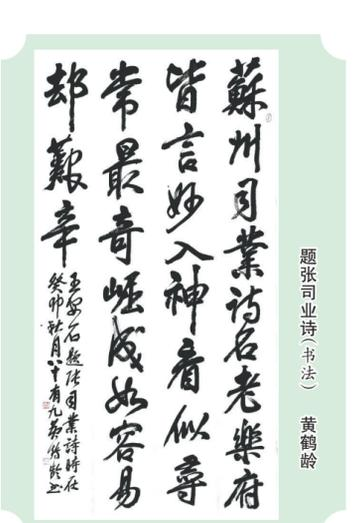 蘇州司業詩名老樂府
皆言妙入神看似尋
常最奇崛成如容易
却艱辛
王安石題張司業詩時在
癸卯秋月八十有九黄鶴齡书
题张司业诗(书法) 黄鹤龄